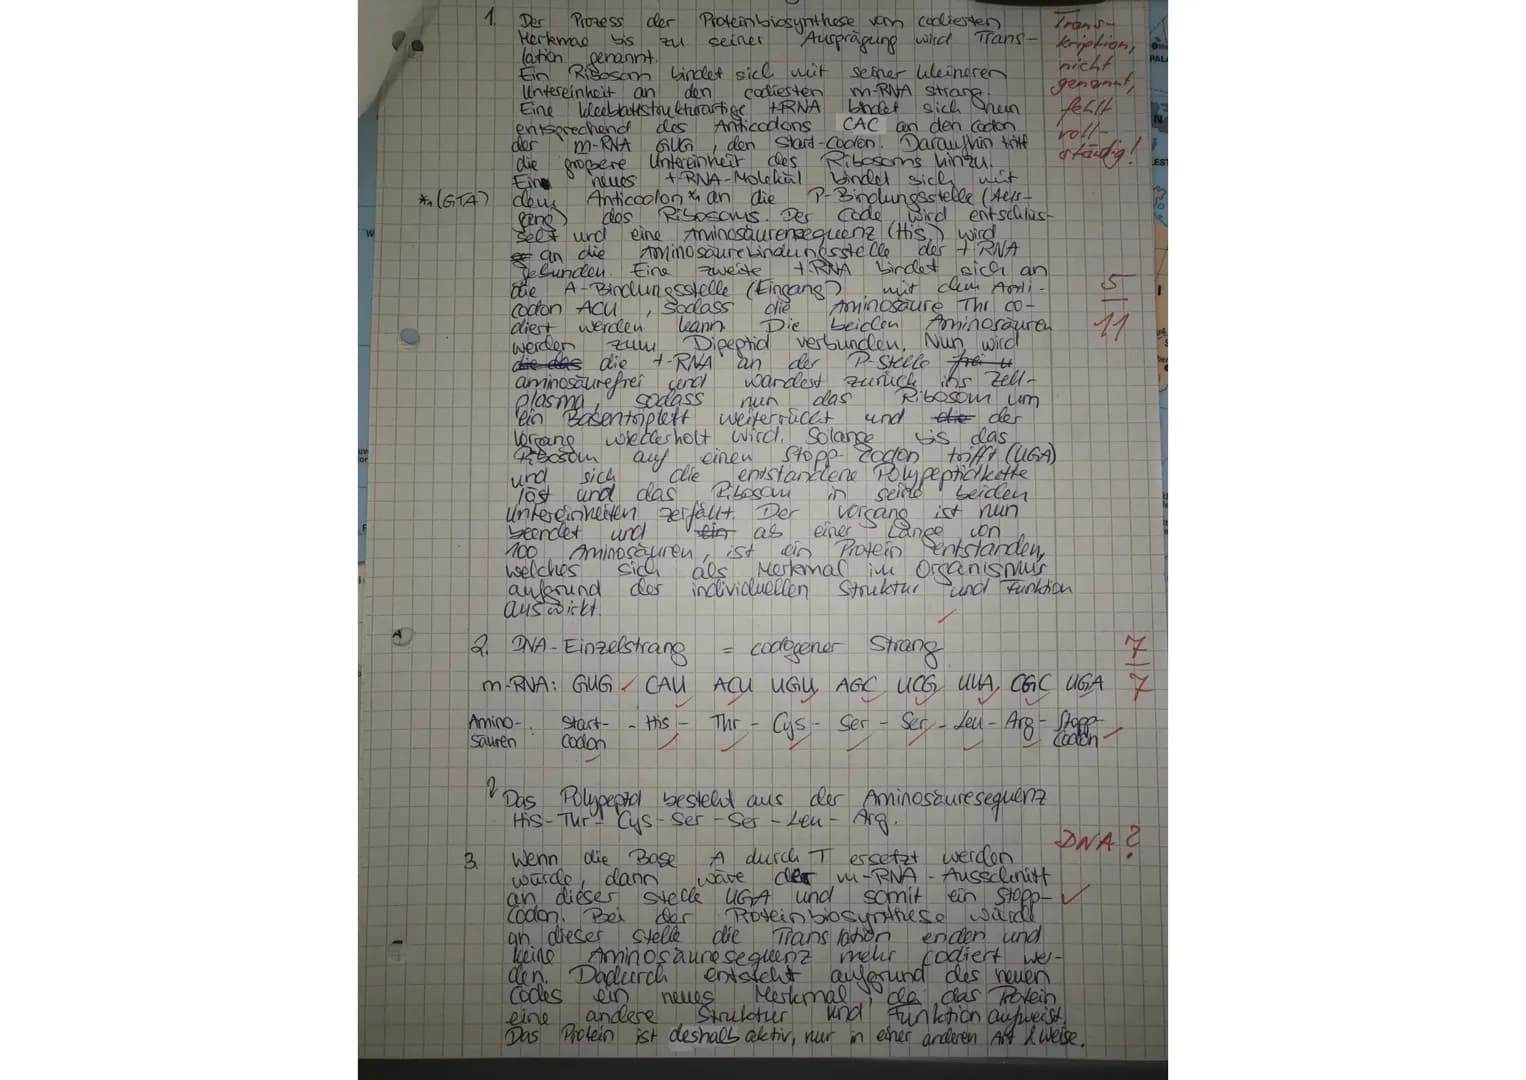 1. Der Prozess der Proteinbiosynthese vom codierten
Merkmal bis zu seiner Ausprägung wird Trans-
lation genannt.
Ein Ribosom bindet sich mit seiner kleineren
Untereinheit an den codierten m-RNA strang.
Eine kleeblattstrukturartige t-RNA bindet sich nun
entsprechend des Anticodons CAC an den codon
der m-RNA GUG, den Start-Codon. Daraufhin tritt
die grössere Untereinheit des Ribosoms hinzu.
Ein neues t-RNA-Molekül bindet sich mit
*1 (GTA)
dem Anticodon *1 an die P-Bindungsstelle (Aus-
gang) des Ribosoms. Der Code wird entschlüs-
selt und eine Aminosäurensequenz (His) wird
an die Aminosäurebindungsstelle der t-RNA
gebunden. Eine zweite t-RNA bindet sich an
die A-Bindungsstelle (Eingang) mit dem Anti-
codon ACU, sodass die Aminosäure Thr co-
diert werden kann. Die beiden Aminosäuren
werden zum Dipeptid verbunden. Nun wird
die t-RNA an der P-Stelle
aminosäurefrei und wandert zurück ins Zell-
plasma, sodass nun das Ribosom um
ein Basentriplett weiterrückt und der
Vorgang wiederholt wird. Solange bis das
Ribosom auf einen Stopp-Codon trifft (UGA)
und sich die entstandene Polypeptidkette
löst und das Ribosom in seine beiden
Untereinheiten zerfällt. Der Vorgang ist nun
beendet und ab einer Länge von
100 Aminosäuren, ist ein Protein entstanden,
welches sich als Merkmal im Organismus
aufgrund der individuellen Struktur und Funktion
auswirkt.
Trans-
kription,
nicht
genannt,
fehlt
voll-
ständig!
5
11
2. DNA-Einzelstrang = codogener Strang
m-RNA: GUG CAU ACU UGU AGC UCG UUA CGC UGA
7
7
Amino- Start- - His - Thr - Cys - Ser - Ser - Leu - Arg - Stopp-
säuren codon codon
Das Polypeptid besteht aus der Aminosäuresequenz
His-Thr-Cys-Ser-Ser-Leu-Arg.
DNA?
3. Wenn die Base A durch T ersetzt werden
würde, dann wäre der m-RNA-Ausschnitt
an dieser Stelle UGA und somit ein Stopp-
Codon. Bei der Proteinbiosynthese würde
an dieser Stelle die Translation enden und
keine Aminosäuresequenz mehr codiert wer-
den. Dadurch entsteht aufgrund des neuen
Codes ein neues Merkmal, da das Protein
eine andere Struktur und Funktion aufweist.
Das Protein ist deshalb aktiv, nur in einer anderen Art & Weise.